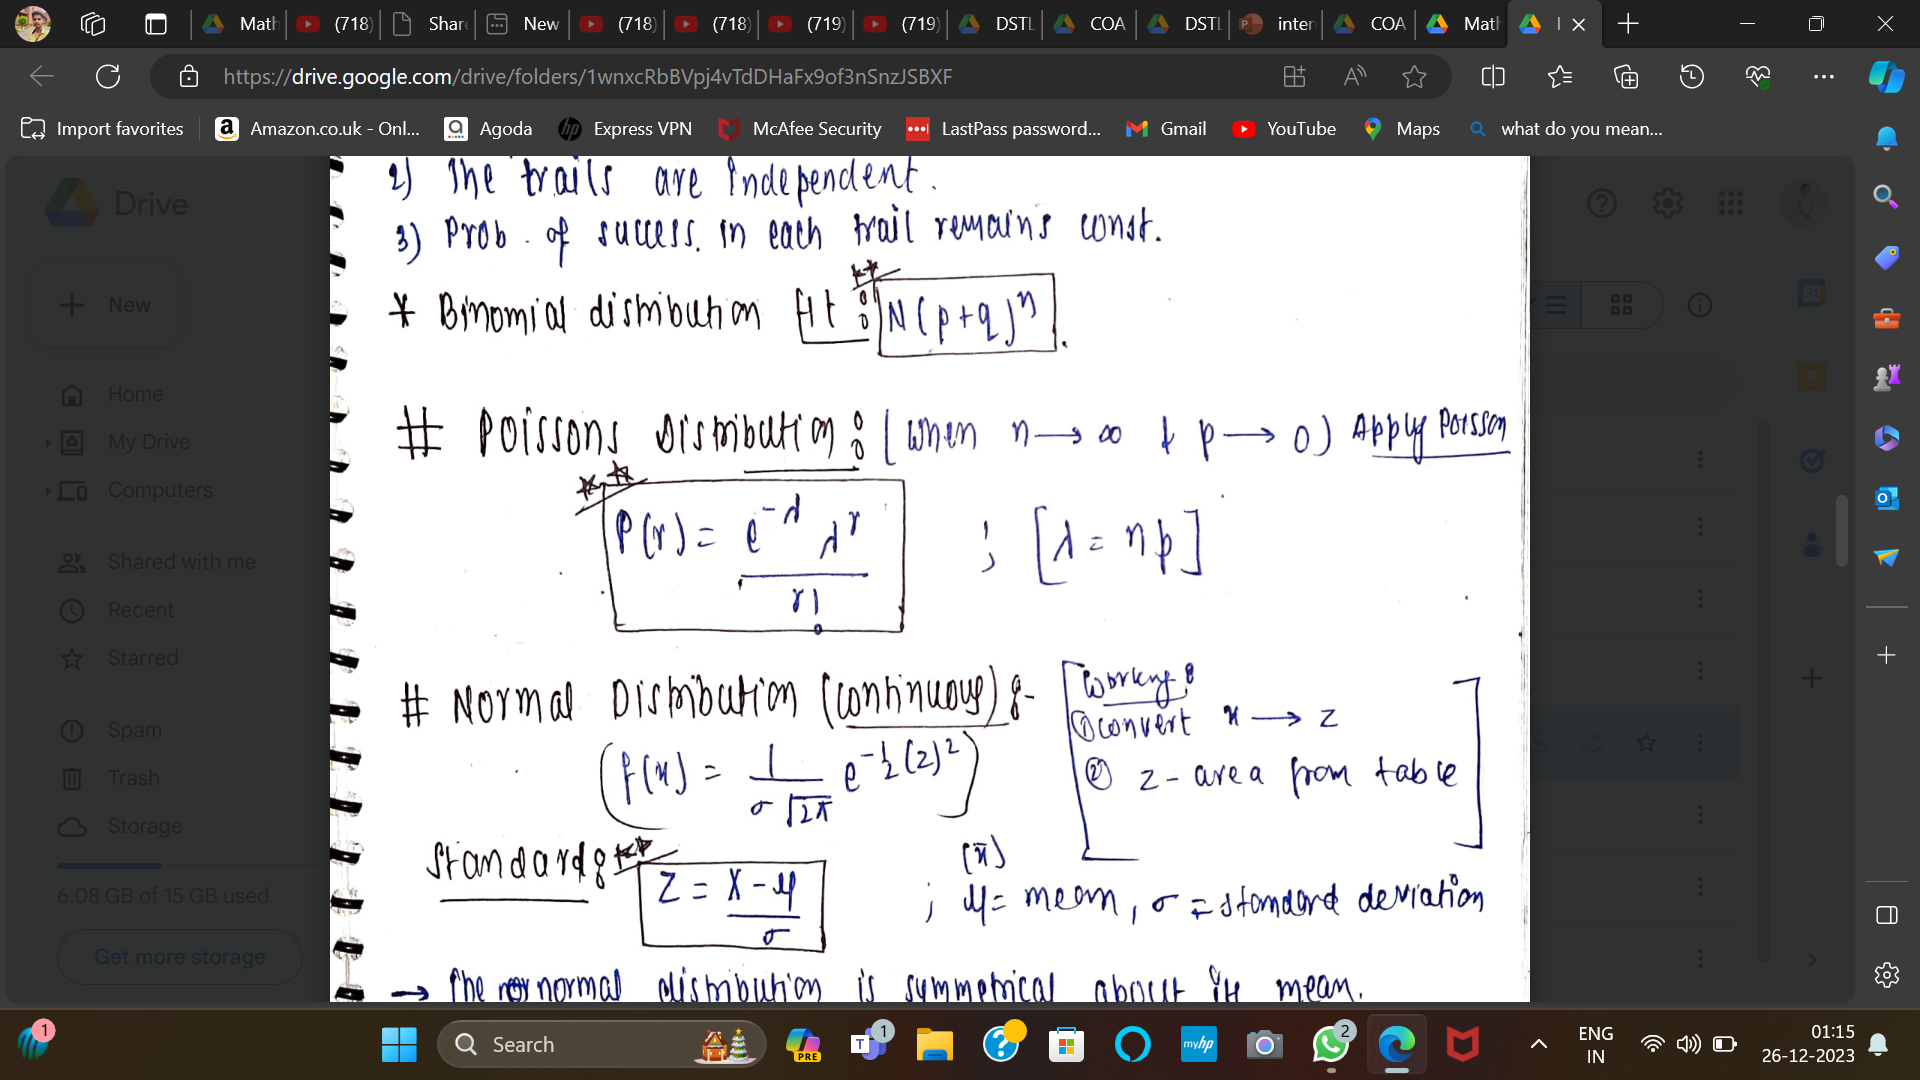 Math
(718)
Shar
New
(718)
(718)
(719)
(719)
DSTL
COA
DSTL
inter
COA
Math
https://drive.google.com/drive/folders/1wnxcRbBVpj4vTdDHaFx9of3nSnzJSBXF
Import favorites
Amazon.co.uk - Onl...
Agoda
Express VPN
McAfee Security
LastPass password...
Gmail
YouTube
Maps
what do you mean...
Drive
New
Home
My Drive
Computers
Shared with me
Recent
Starred
Spam
Trash
Storage
6.08 GB of 15 GB used
Get more storage
2) The trails are independent.
3) Prob. of success in each trail remains const.
* Binomial distribution fit : N(p+q)^n .
# Poissons Distribution : (when n → ∞ & p → 0) Apply Poisson
P(r) = e^-λ λ^r / r! ; [λ = np]
# Normal Distribution (continuous) :-
(f(x) = 1 / σ √2π e^-1/2 (z)^2)
[Working :
① convert x → z
② z - area from table]
Standard : Z = X - μ / σ ; (x̄) μ = mean, σ = standard deviation
→ The normal distribution is symmetrical about its mean.
Search
PRE
1
1
2
myhp
ENG
IN
01:15
26-12-2023